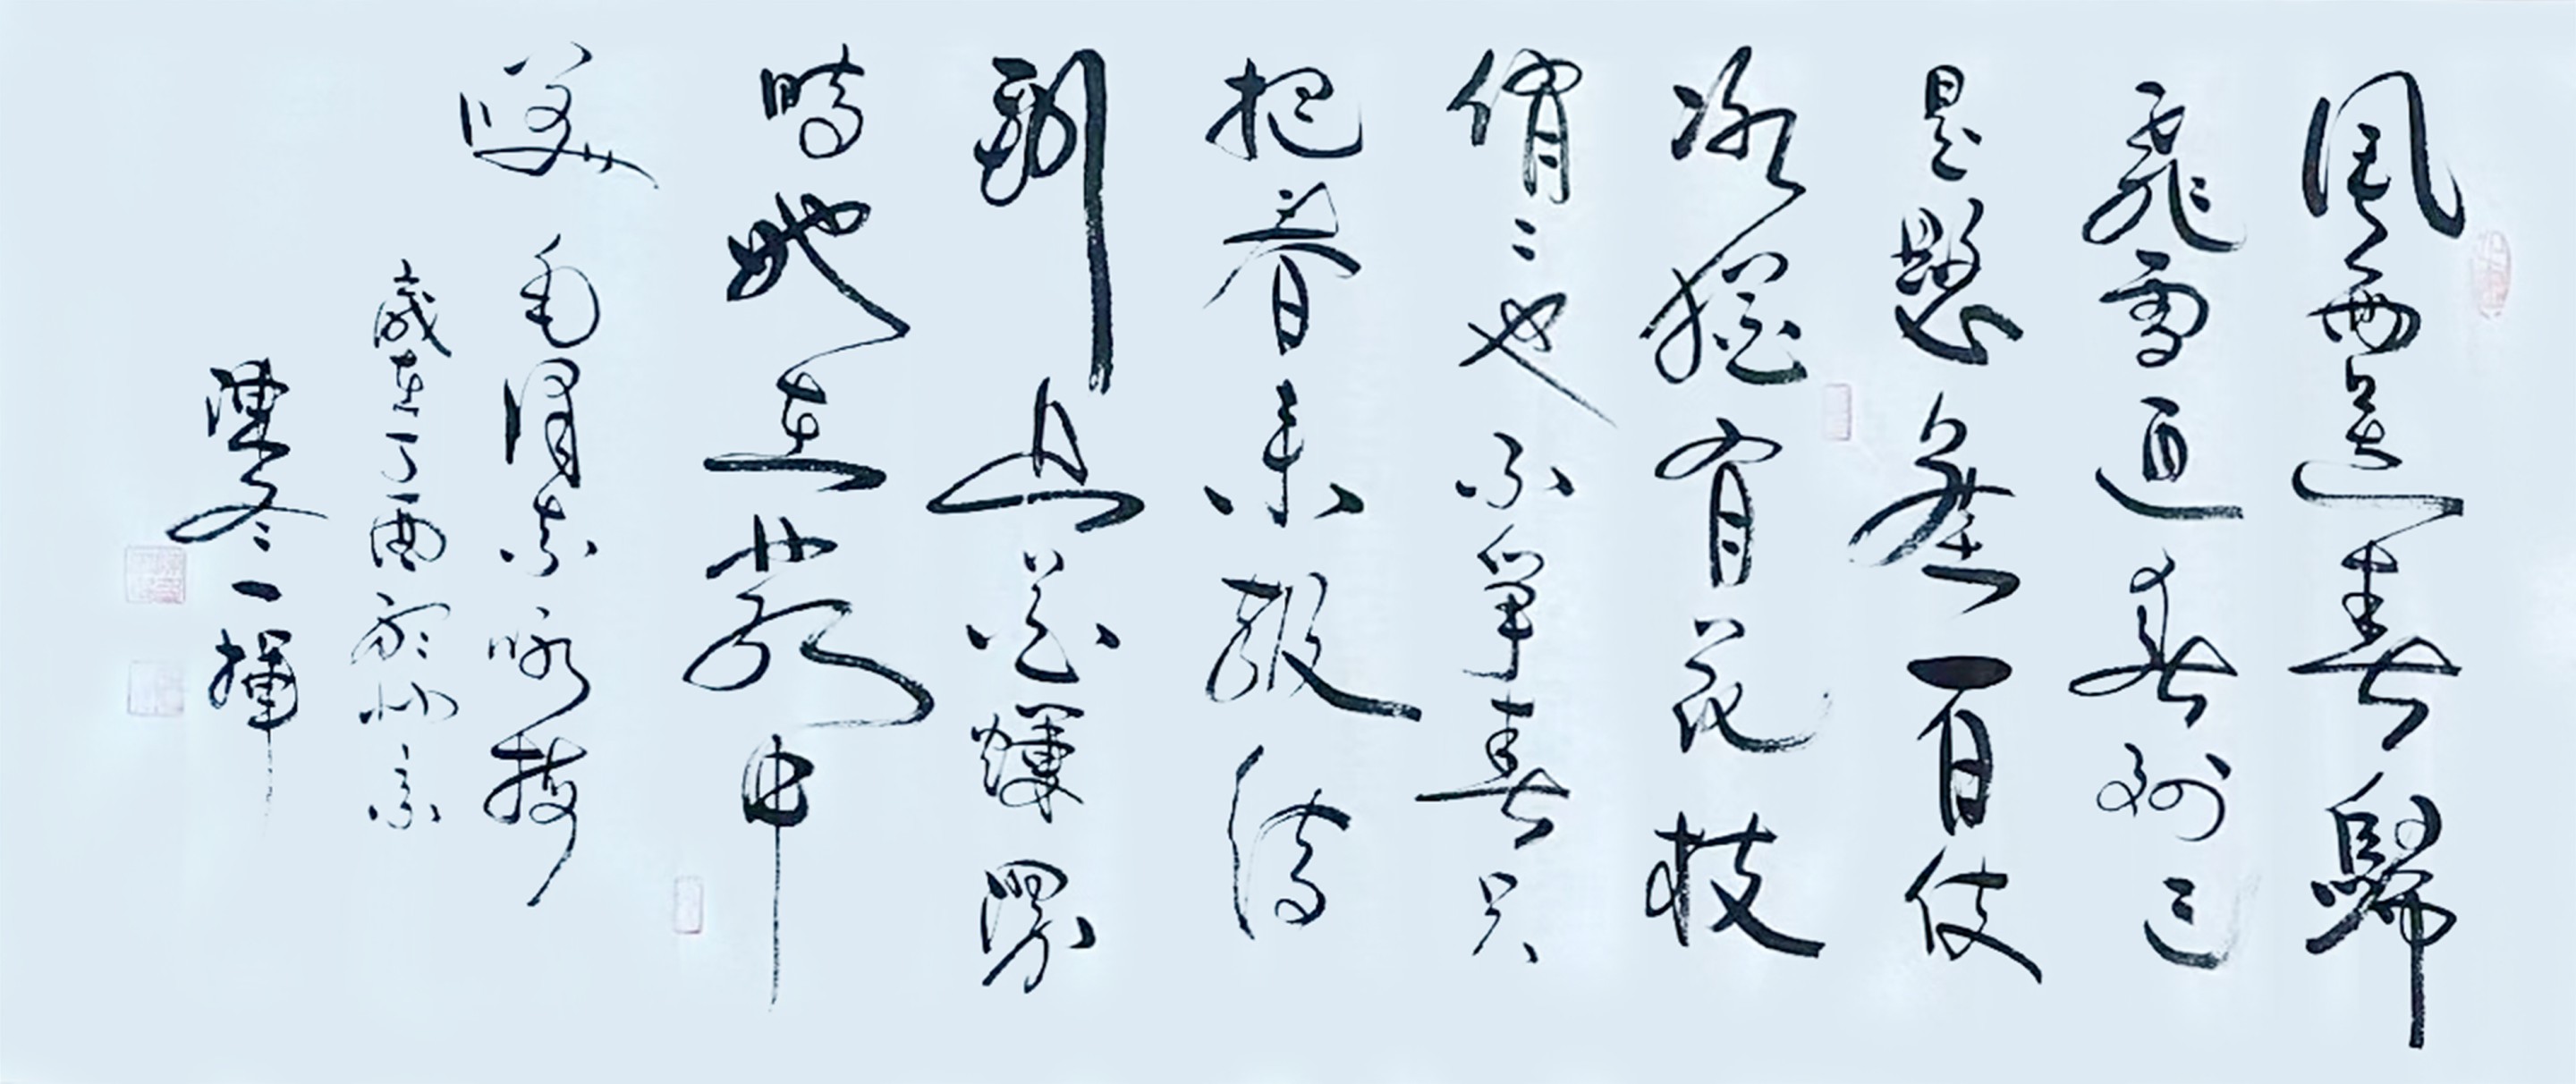 風雨送春歸
飛雪迎春到已
是懸崖百丈
冰猶有花枝
俏〻也不爭春只
把春來報待
到山花爛漫
時她在叢中
笑 毛澤東咏梅
歲在丁酉於北京
陳冬一揮